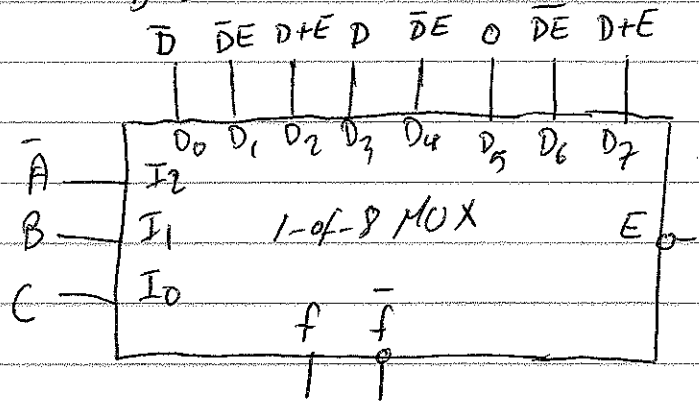 D̅ D̅E D+E D D̅E 0 D̅E̅ D+E
D0 D1 D2 D3 D4 D5 D6 D7
A̅ I2
B I1 1-of-8 MUX E
C I0
f f̅